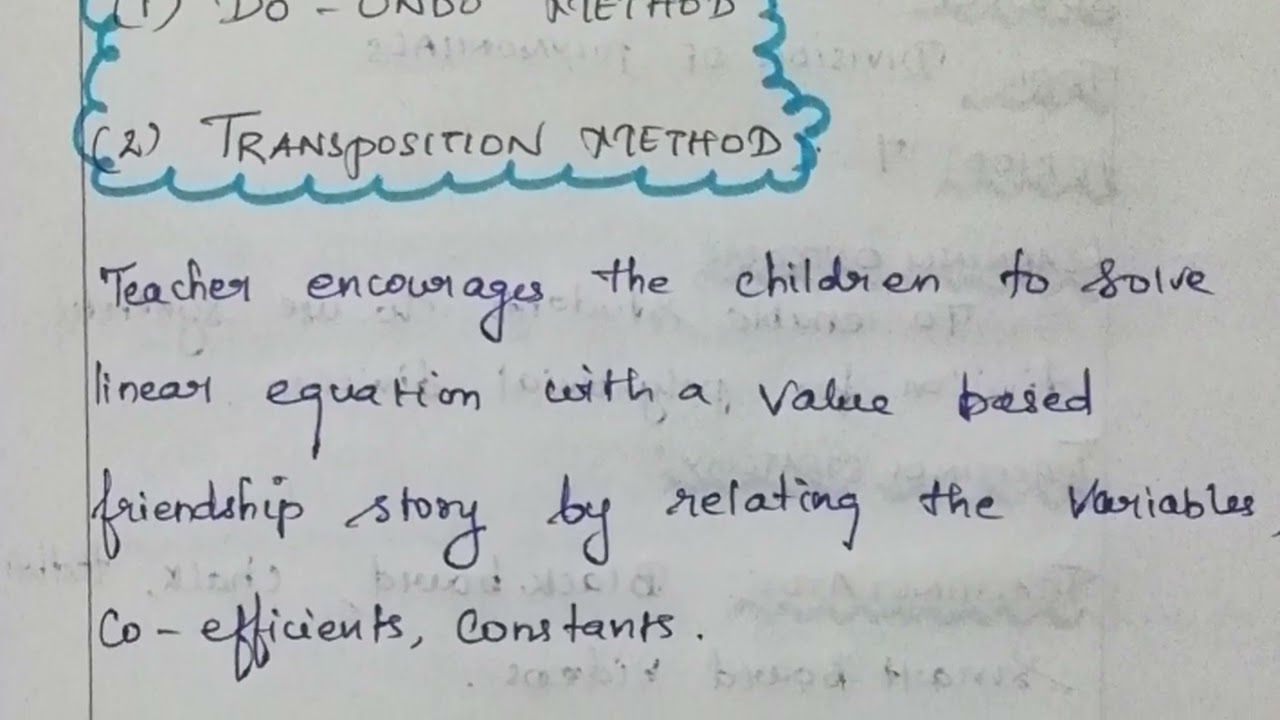 (1) DO - UNDO METHOD
(2) TRANSPOSITION METHOD.
Teacher encourages the children to solve
linear equation with a, value based
friendship story by relating the variables,
Co-efficients, constants.